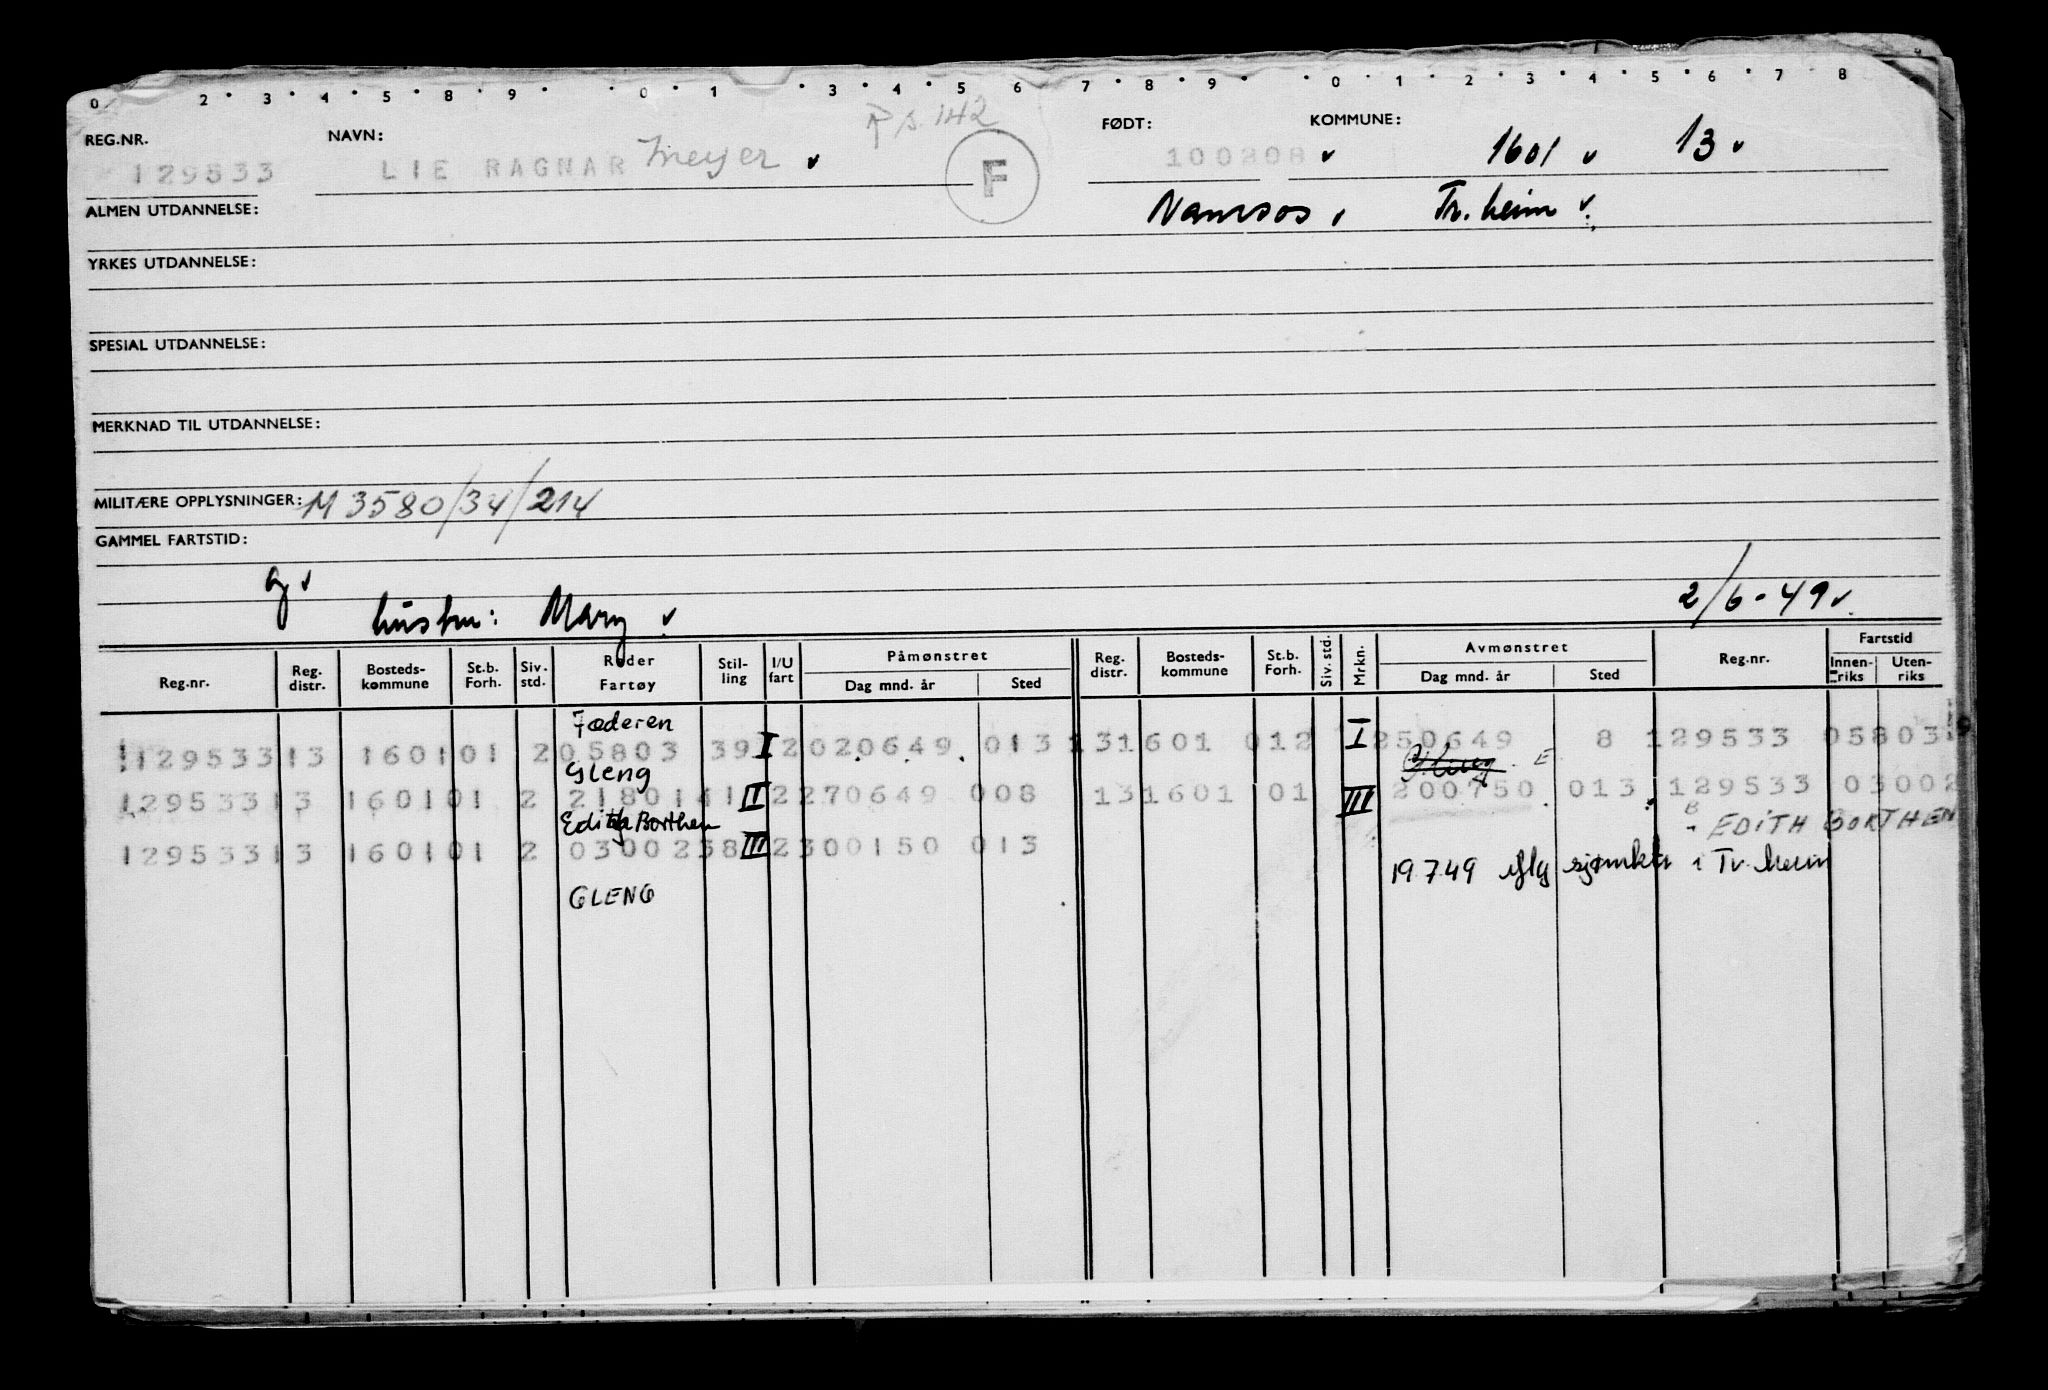 0 2 3 4 5 8 9 0 1 3 4 5 6 7 8 9 0 1 2 3 4 5 6 7 8
REG.NR. NAVN: FØDT: KOMMUNE:
129533 LIE RAGNAR Meyer F 1601 13
ALMEN UTDANNELSE: Namsos Tr.heim
YRKES UTDANNELSE:
SPESIAL UTDANNELSE:
MERKNAD TIL UTDANNELSE:
MILITÆRE OPPLYSNINGER: M 3580/34/214
GAMMEL FARTSTID:
g
hustru: Mary 2/6-49
Reg.nr. Reg. distr. Bosteds- kommune St.b. Forh. Siv. std. Reder Fartøy Stil- ling I/U fart Påmønstret Dag mnd. år Sted Reg. distr. Bosteds- kommune St.b. Forh. Siv. std. Mrkn. Avmønstret Dag mnd. år Sted Reg.nr. Fartstid Innen- riks Uten- riks
Jæderen
129533 13 1601 01 2 05803 39 I 2 020649 013 13 1601 012 I 250649 8 129533 05803
Gleng
129533 13 1601 01 2 21801 41 II 2 270649 008 13 1601 01 III 200750 013 129533 03002
Edith Borthen - EDITH BORTHEN
129533 13 1601 01 2 03002 38 III 2 300150 013
19.7.49 iflg sjømktr i Tr.heim
GLENG